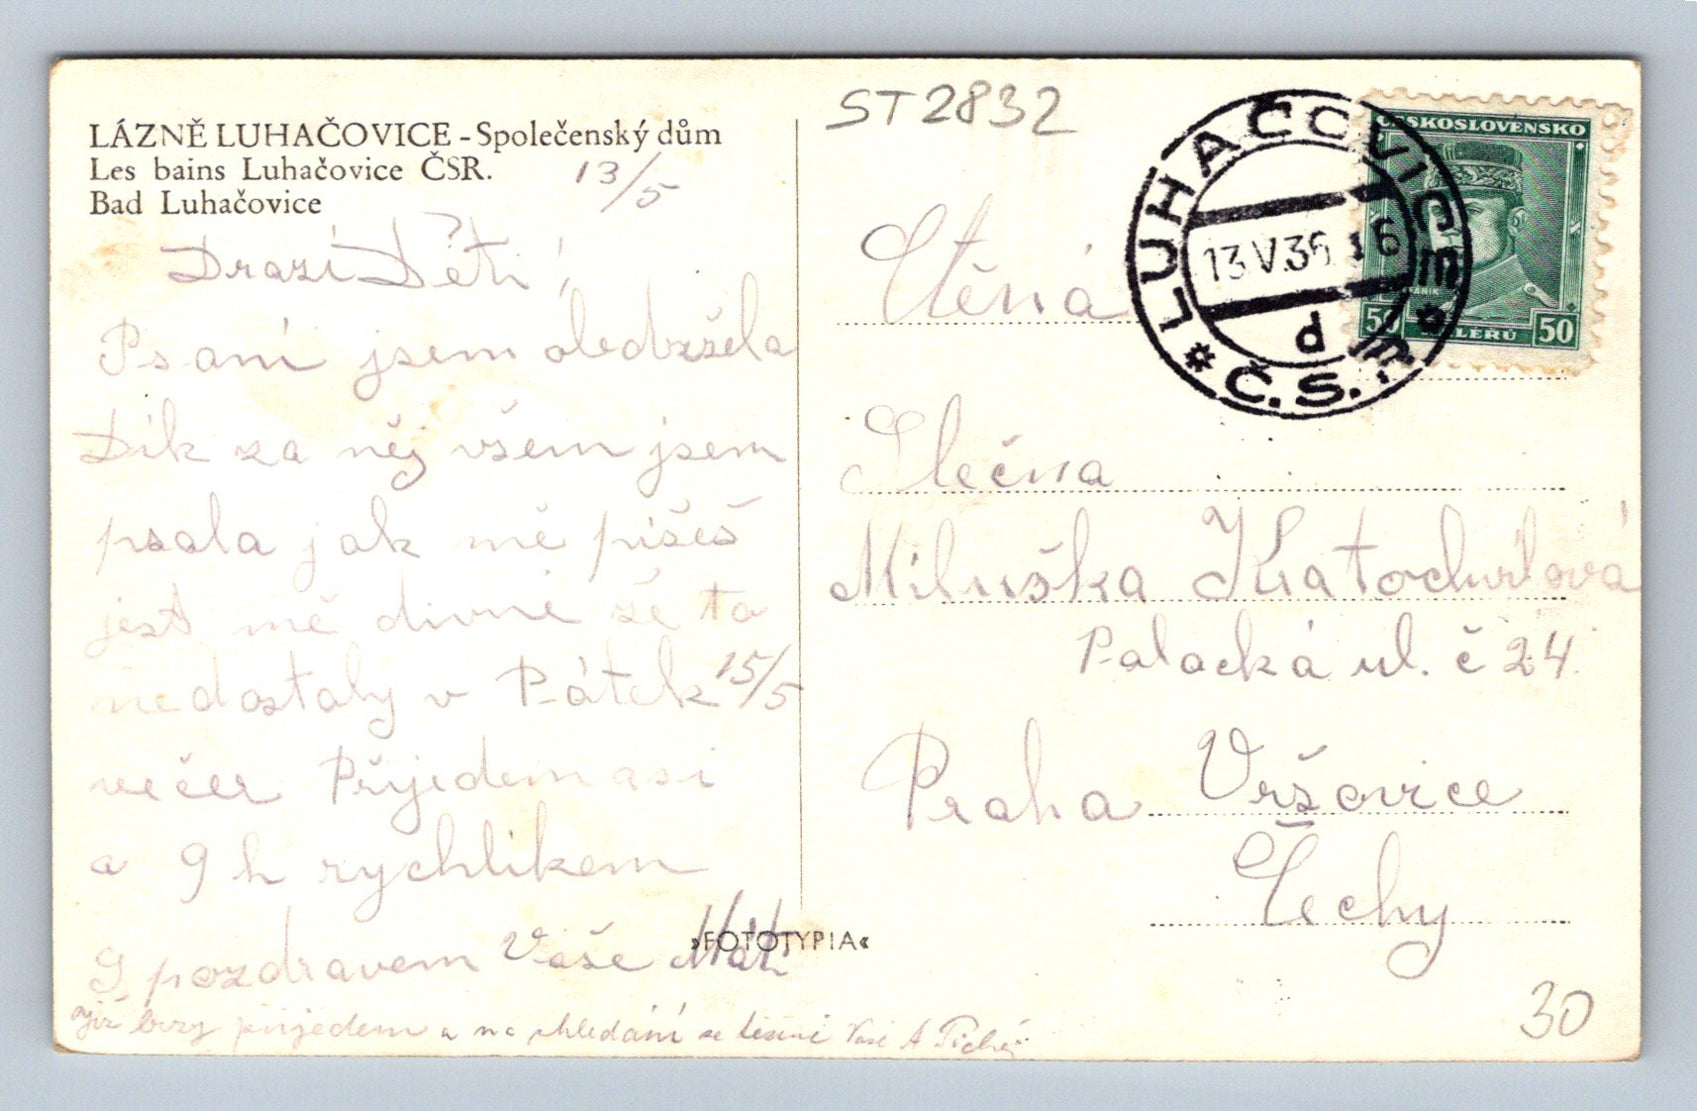 LÁZNĚ LUHAČOVICE - Společenský dům
Les bains Luhačovice ČSR.
Bad Luhačovice
13/5
Drazí Děti,
Psaní jsem obedržela
Dík za něj všem jsem
psala jak mě píšeš
jest mě divné že to
nedostaly v Pátek 15/5
večer Přijedem asi
a 9 h rychlikem
S pozdravem Vaše Máti
již brzy přijedem a na shledání se těšíme Vaši A
»FOTOTYPIA«
ST2832
LUHAČOVICE
13.V.36 16
d
Č.S.R.
ČESKOSLOVENSKO
50 HALÉRŮ 50
Ctěná
Slečna
Miluška Kratochvílová
Palacká ul. č 24.
Praha Vršovice
Čechy
30